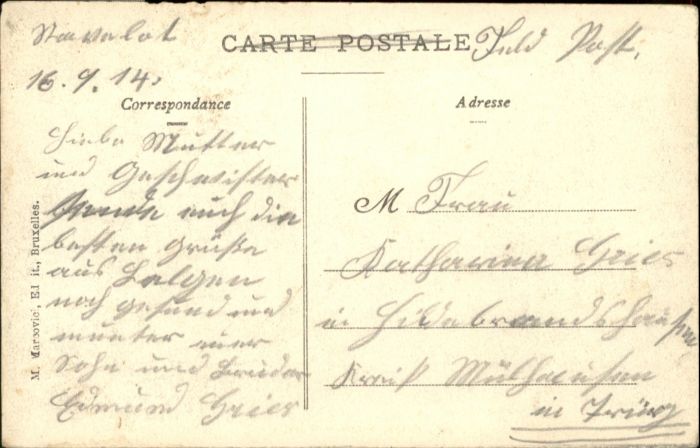 Stavelot
16.9.14.
CARTE POSTALE
Feld Post.
Correspondance
Liebe Mutter
und Geschwister
sende euch die
besten Grüße
aus Belgen
noch gesund und
munter euer
Sohn und Bruder
Edmund Gries
M. Marcovici, Edit., Bruxelles.
Adresse
M Frau
Katharina Gries
in Hildebrandshausen
Kreiß Mülhausen
in Türig